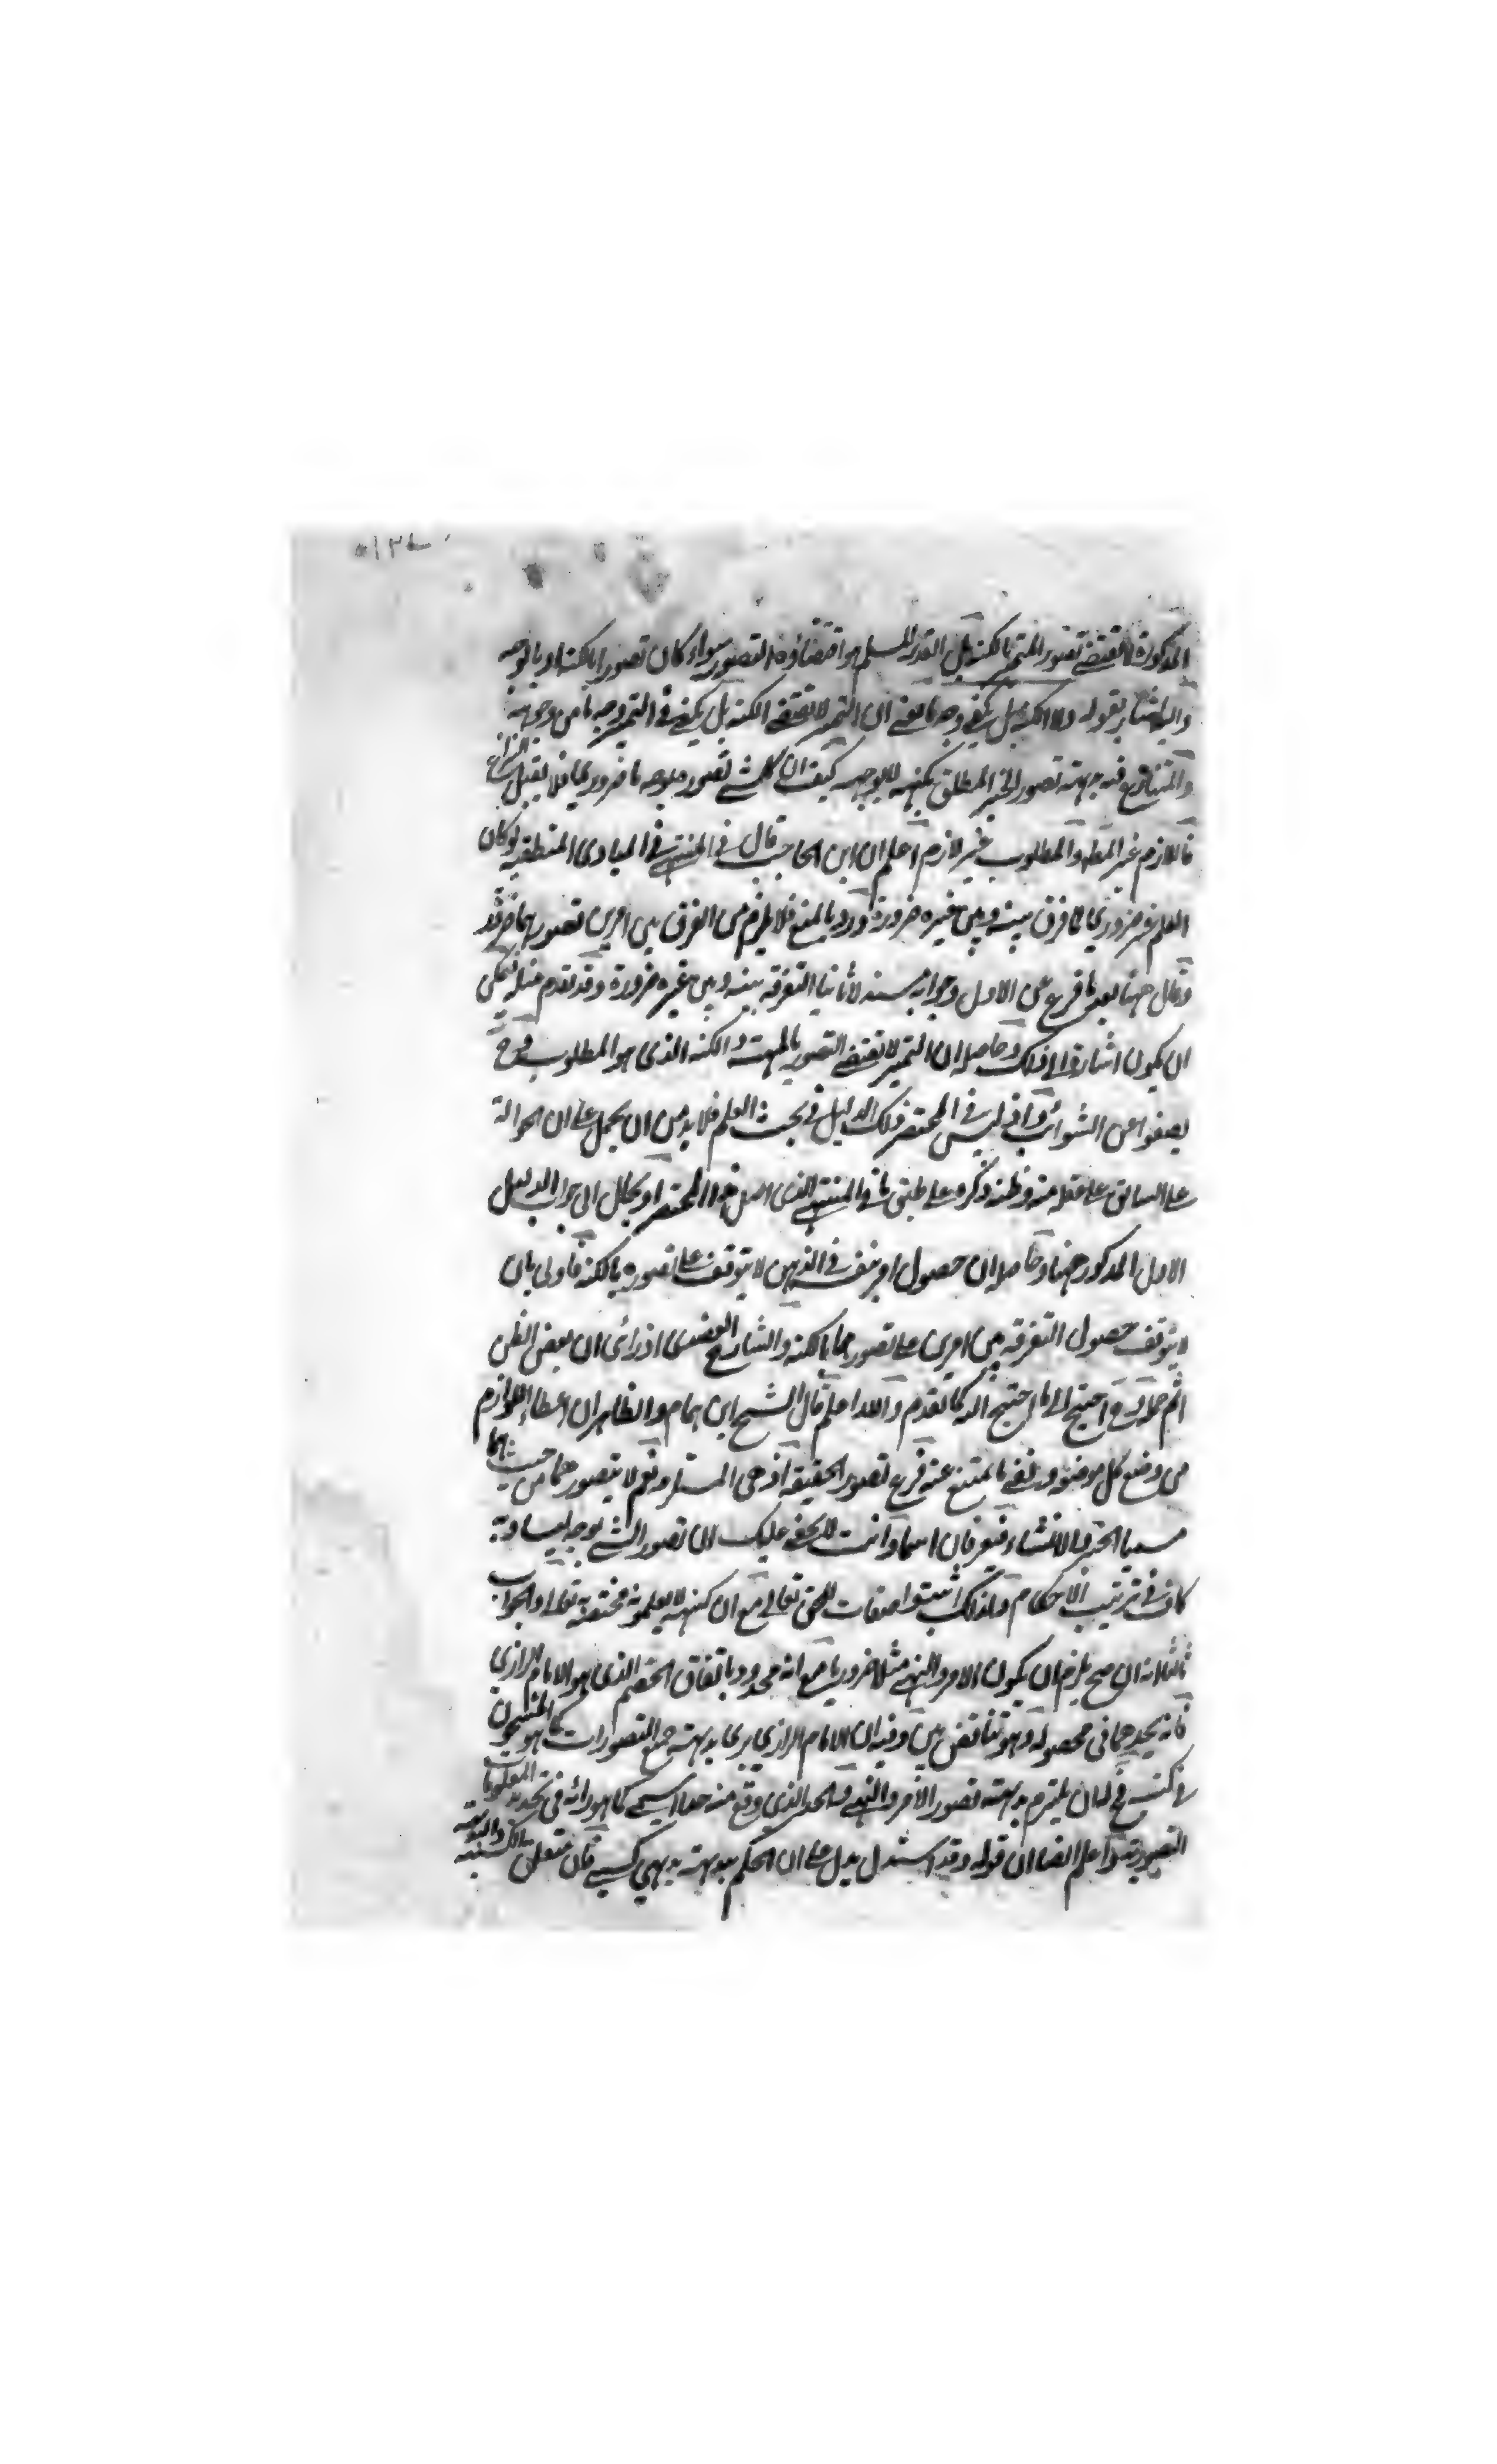 المذكورة لا تقتضي تصور المتميز بالكنه بل القدر المسلم هو اقتضاؤه التصور سواء كان تصورا بالكنه او بالوجه
واليه اشار بقوله ولا الكنه بل يكفي وجه ما يعني ان التميز لا يقتضي الكنه بل يكفي في التميز وجه ما من وجوهه
والمتنازع فيه بديهة تصور الخبر المطلق بكنهه لا بوجه كيف ان كل شيء تصوره بوجه ما ضروري فلا يقبل النزاع
فاللازم غير المطلوب والمطلوب غير لازم اعلم ان ابن الحاجب قال في المنتهى في المبادي المنطقية لو كان
العلم غير ضروري لما فرق بينه وبين غيره ضرورة ورد بالمنع فلا يلزم من الفرق بين امرين تصورهما
وقال ههنا بعد ما فرغ عن الاول وجوابه مستدلا ثانيا التفرقة بينه وبين غيره ضرورة وقد تقدم مثله فيمكن
ان يكون اشارة الى ذلك وحاصله ان التميز لا يقتضي التصور بالمهية والكنه الذي هو المطلوب
يصفوا عن الشوائب واذ ليس في المختصر ذلك الدليل في بحث العلم فلا بد من ان يحمل على ان الحوالة
على السابق على غفلة منه وظنه ذكره على طبق ما في المنتهى الذي اصل هذا المختصر او يحال الى جواب الدليل
الاول المذكور ههنا وحاصله ان حصول امر بنفسه في الذهن لا يتوقف على تصوره بالكنه فاولى بان
لا يتوقف حصول التفرقة بين امرين على تصورهما بالكنه والشارح العضدي اذ رأى ان بعض الظن
اثم احتيج الى ما احتيج اليه كما تقدم والله اعلم قال الشيخ ابن همام والظاهر ان اعطاء اللوازم
من وضع كل موضعه ونفي ما يمتنع عنه فرع تصور الحقيقة اذ هي المستلزمة نعم لا يتصورهما من حيث هما
مسميا الخبر والانشاء فيعرفان اسما وانت لا يخفى عليك ان تصور الشيء بوجه يساويه
كاف في ترتيب الاحكام ولذلك اثبتوا صفات للحق تعالى مع ان كنهه لا يعلمونه مختصة به تعالى والجواب
ثالثا انه ان صح يلزم ان يكون الامر والنهي مثلا ضروريا مع انه محدود باتفاق الخصم الذي هو الامام الرازي
فانه يحدهما في محصوله وهو تناقض بين وفيه ان الامام الرازي يرى بديهة جميع التصورات كما هو المشحون
في كتبه فله ان يلتزم بديهة تصور الامر والنهي والحد الذي وقع منه حد اسمي كما هو رأيه في تحديد المعلومات
التصورية واعلم ايضا ان قوله وقد استدل يدل على ان الحكم ببديهة بديهي كسبي فان متعلق الكسبية والبديهية